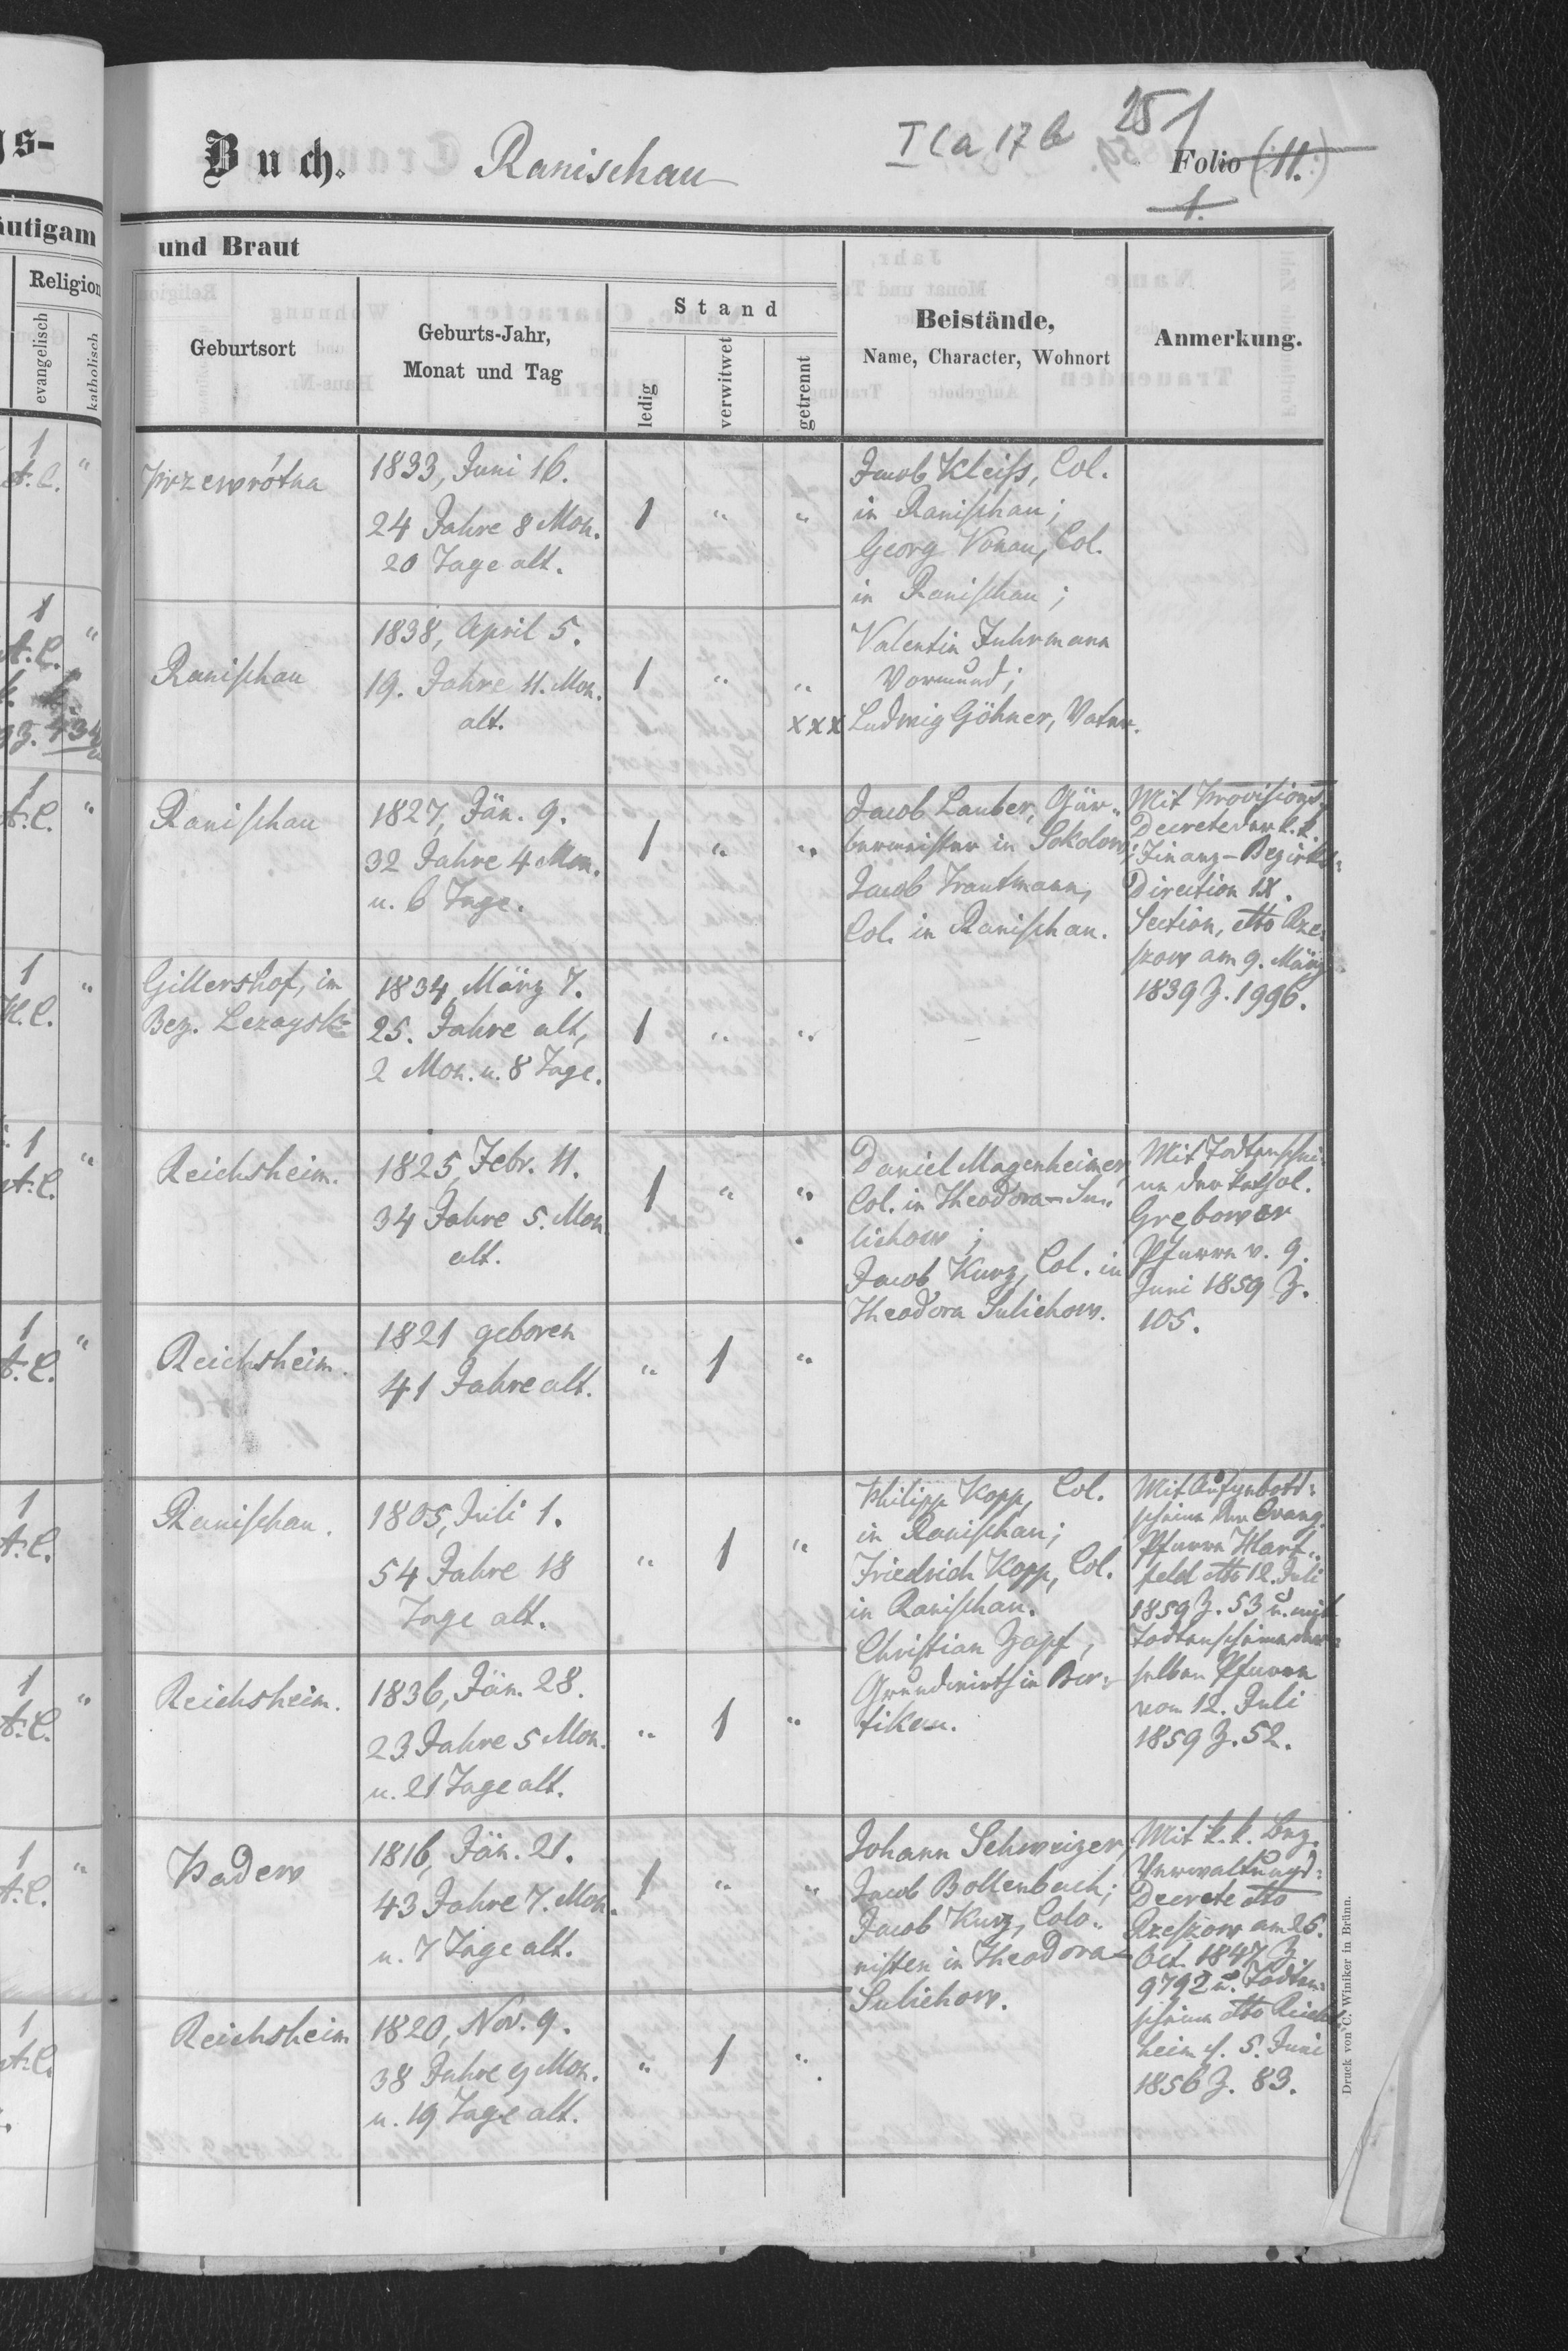 gs-
Buch.
Ranischau
I C a 17 b
251
Folio (11.)
1.
äutigam
und Braut
Religion
evangelisch
katholisch
Geburtsort
Geburts-Jahr,
Monat und Tag
Stand
ledig
verwitwet
getrennt
Beistände,
Name, Character, Wohnort
Anmerkung.
1 "
A.C.
Przewrótna
1833, Juni 16.
24 Jahre 8 Mon.
20 Tage alt.
1 " "
Jacob Kleiss, Col.
in Ranischau;
Georg Vonau, Col.
in Ranischau;
1 "
A.C.
Ranischau
1838, April 5.
19. Jahre 11. Mon.
alt.
1 " "
Valentin Fuhrmann
Vormund;
xxx Ludwig Göhner, Vater.
1 "
A.C.
Ranischau
1827, Jän. 9.
32 Jahre 4 Mon.
u. 6 Tage.
1 " "
Jacob Lauber, Gär-
bermeister in Sokolow;
Jacob Trautmann,
Col. in Ranischau.
Mit Provisions-
Decrete der k.k.
Finanz-Bezirks-
Direction IX.
Section, dtto Rze-
szow am 9. März
1839 Z. 1996.
1 "
H.C.
Gillershof, im
Bez. Lezaysk
1834, März 7.
25. Jahre alt,
2 Mon. u. 8 Tage.
1 " "
1 "
A.C.
Reichsheim.
1825, Febr. 11.
34 Jahre 5. Mon.
alt.
1 " "
Daniel Magenheimer,
Col. in Theodora-Su-
lichow;
Jacob Kurz, Col. in
Theodora Sulichow.
Mit Todtenschei-
ne der kathol.
Grębower
Pfarre v. 9.
Juni 1859 Z.
105.
1 "
A.C.
Reichsheim.
1821 geboren
41 Jahre alt.
" 1 "
1
A.C.
Ranischau.
1805, Juli 1.
54 Jahre 18
Tage alt.
" 1 "
Philipp Kopp, Col.
in Ranischau;
Friedrich Kopp, Col.
in Ranischau.
Christian Zapf,
Grundwirth in
Mit Aufgebott-
scheine der Evang.
Pfarre Hart-
feld dtto 12. Juli
1859 Z. 53 u. mit
Todtenscheine der-
selben Pfarre
vom 12. Juli
1859 Z. 52.
1 "
A.C.
Reichsheim.
1836, Jän. 28.
23 Jahre 5 Mon.
u. 21 Tage alt.
" 1 "
1 "
A.C.
Padew
1816, Jän. 21.
43 Jahre 7. Mon.
u. 7 Tage alt.
1 " "
Johann Schweizer,
Jacob Bollenbach;
Jacob Kurz, Colo-
nisten in Theodora-
Sulichow.
Mit k.k. Bez.
Verwaltungs-
Decrete dtto
Rzeszow am 25.
Oct. 1847 Z.
9792 u. Todten-
scheine dtto Reichs-
heim d. 5. Juni
1856 Z. 83.
1
A.C.
Reichsheim
1820, Nov. 9.
38 Jahre 9 Mon.
u. 19 Tage alt.
" 1 "
Druck von C. Winiker in Brünn.